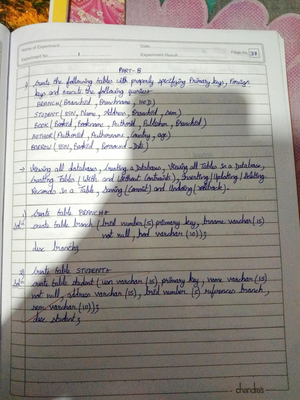 Name of Experiment
Date
Experiment No. 1
Experiment Result
Page No. 33
PART-B
1) Create the following tables with properly specifying Primary keys, Foreign
keys and execute the following queries
BRANCH (Branchid, Branchname, HOD)
STUDENT (USN, Name, Address, Branchid, sem)
BOOK (Bookid, Bookname, Authorid, Publisher, Branchid)
AUTHOR (Authorid, Authorname, Country, age)
BORROW (USN, Bookid, Borrowed_Date)
→ Viewing all databases, Creating a Database, Viewing all Tables in a Database,
Creating Tables (With and Without Constraints), Inserting/Updating/Deleting
Records in a Table, Saving (Commit) and Undoing (rollback).
1) Create table BRANCH
create table branch (brid number(5) primary key, brname varchar(15)
not null, hod varchar(10));
desc branch;
2) Create table STUDENT
create table student (usn varchar(15) primary key, name varchar(15)
not null, address varchar(15), brid number (5) references branch,
sem varchar(10));
desc student;
chandras